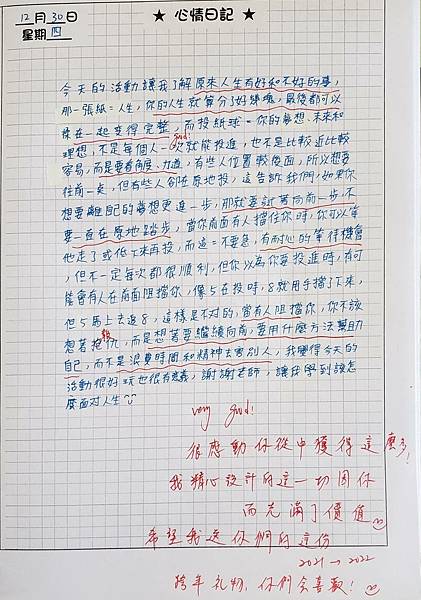 12月30日
星期四
★ 心情日記 ★
今天的活動讓我了解原來人生有好和不好的事,
那一張紙=人生,你的人生就算分了好幾塊,最後都可以
抹在一起變得完整,而投紙球=你的夢想、未來和
good!
理想,不是每個人一次就能投進,也不是比較近比較
容易,而是要看角度、力道,有些人位置較後面,所以想要
往前一点,但有些人卻在原地投,這告訴我們,如果你
想要離自己的夢想更進一步,那就要試著向前一步,不
要一直在原地踏步,當你前面有人擋住你時,你可以等
他走了或低下來再投,而這=不要急,有耐心的等待機會
,但不一定每次都很順利,但你以為你要投進時,有可
能會有人在前面阻擋你,像5在投時,8就用手擋了下來,
但5馬上去追8,這樣是不對的,當有人阻擋你,你不該
想著報仇,而是想著要繼續向前,要用什麼方法幫助
自己,而不是浪費時間和精神去害別人,我覺得今天的
活動很好玩也很有意義,謝謝老師,讓我學到該怎
麼面对人生
very good!
很感動你從中獲得這麼多!
我精心設計的這一切因你
而充滿了價值
希望我送你們的這份
2021→2022
跨年礼物,你們会喜歡!